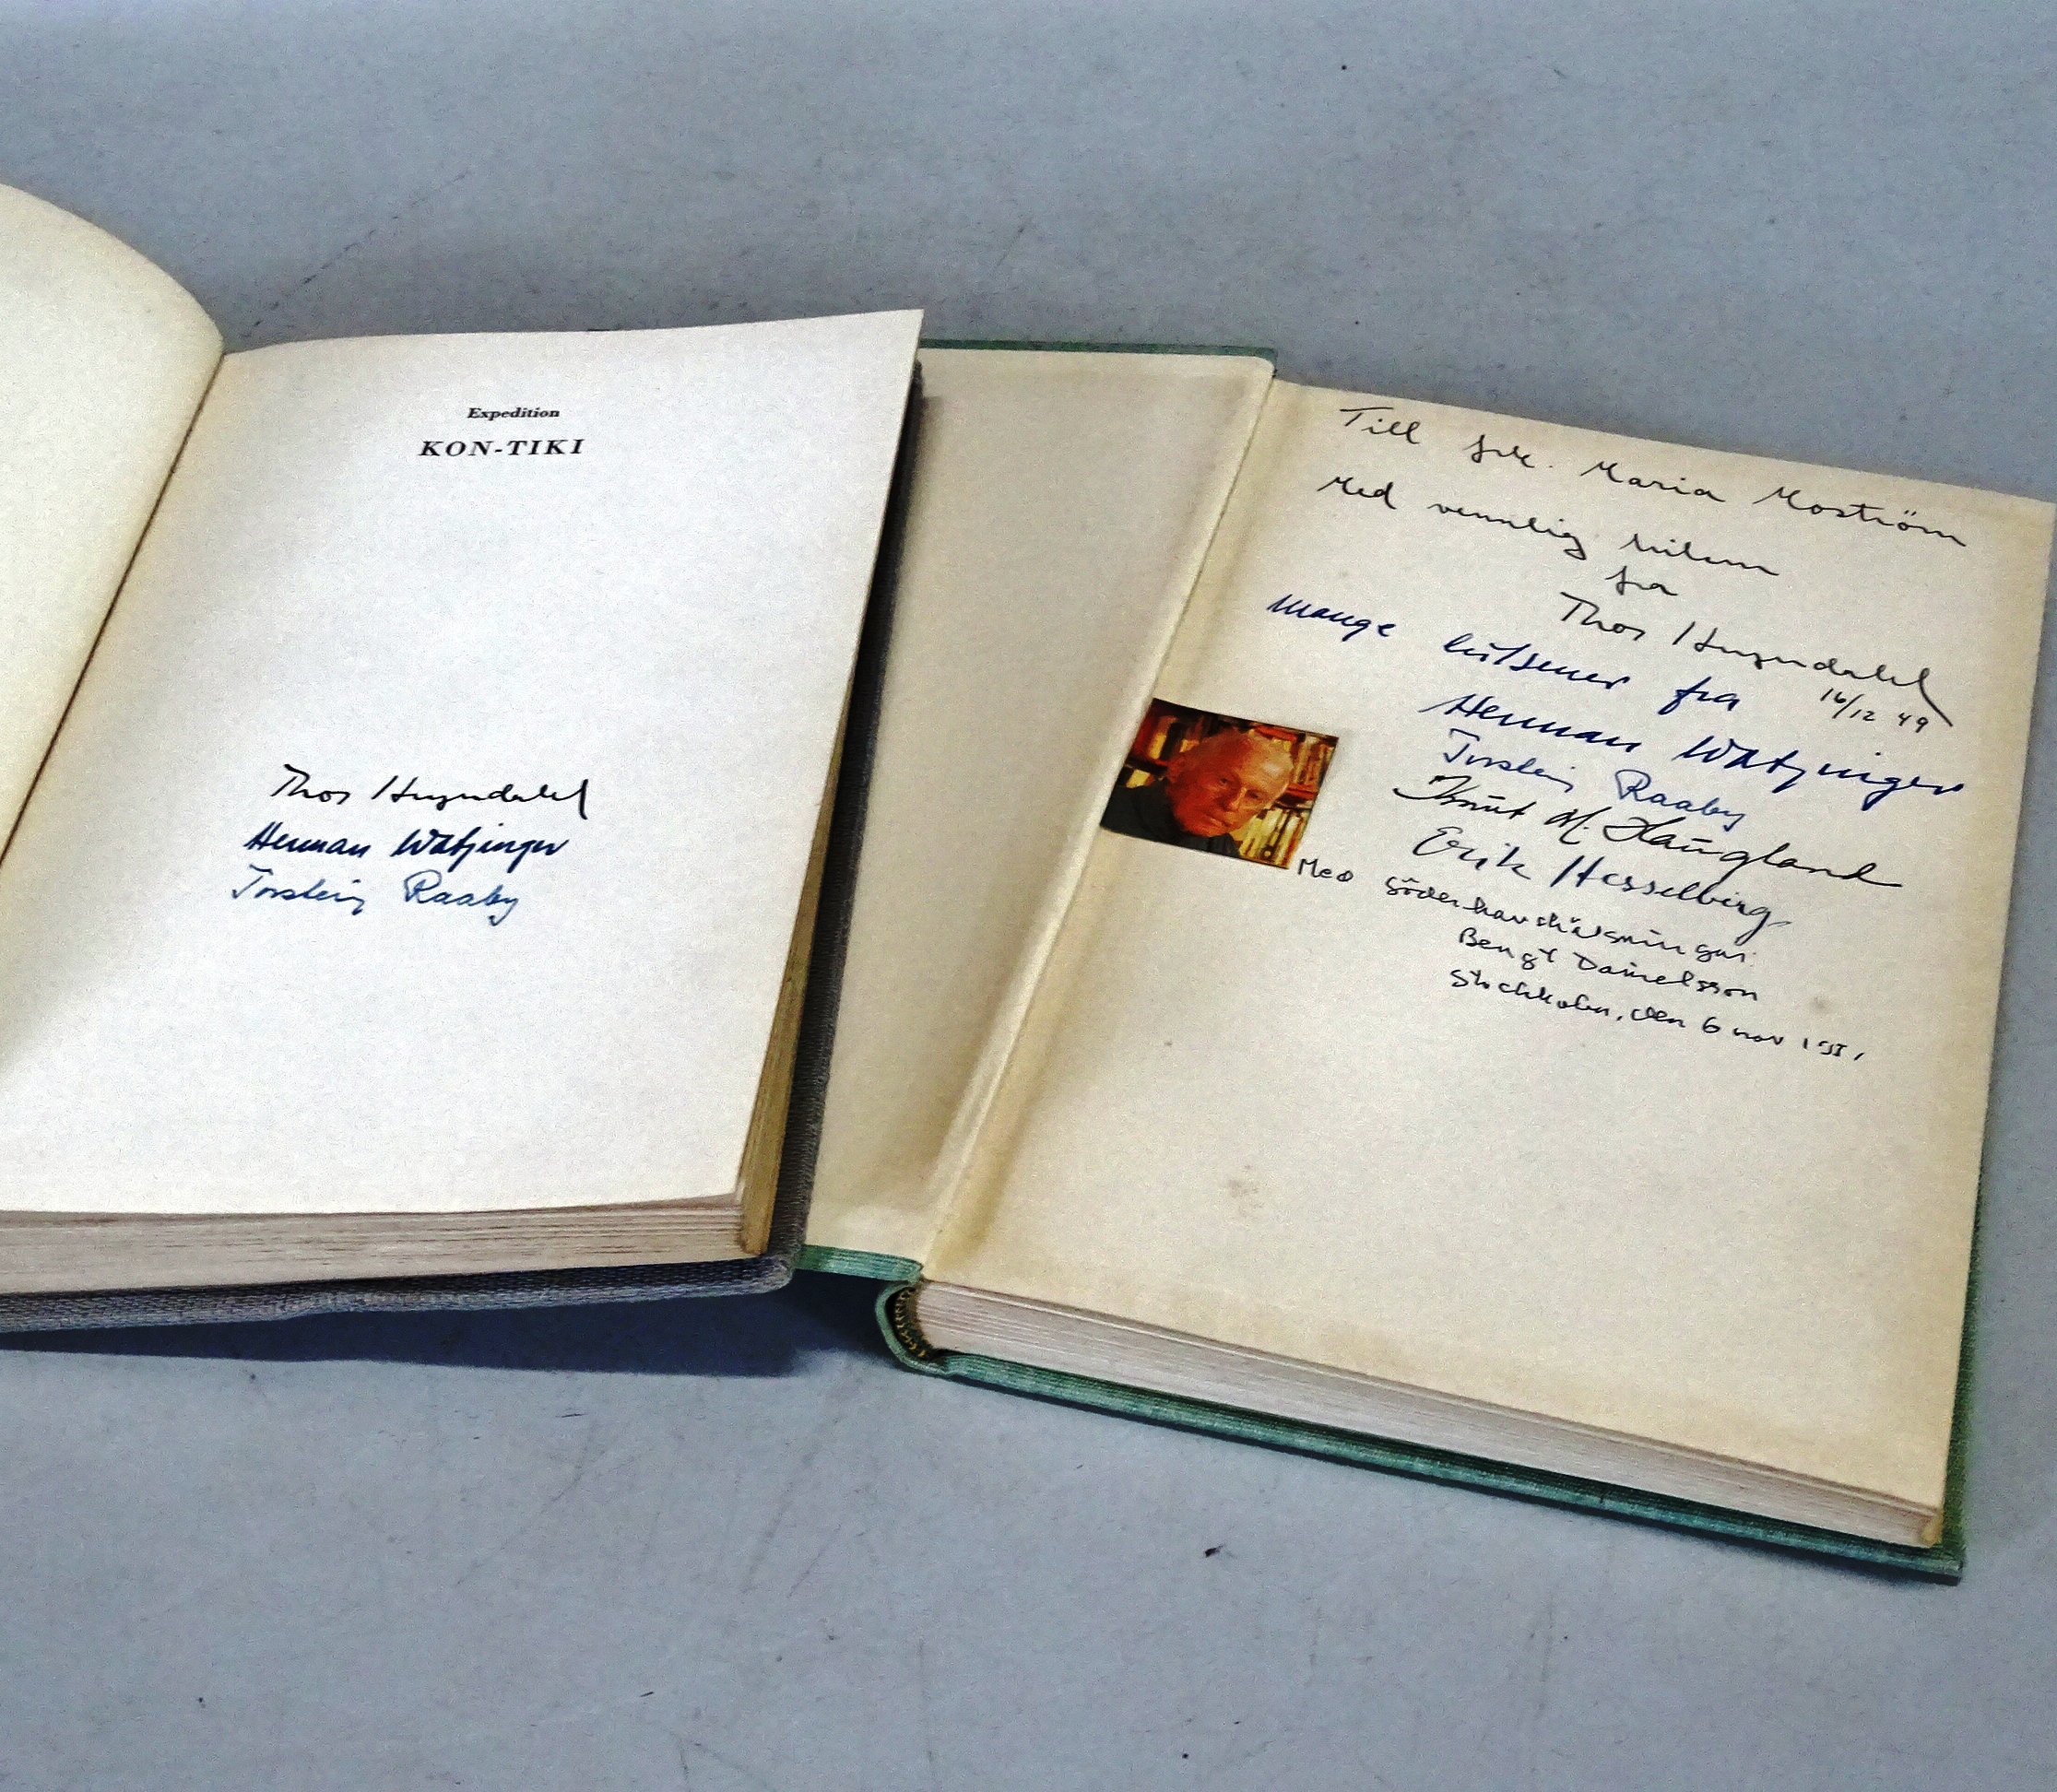 Expedition
KON-TIKI
Thor Heyerdahl
Herman Watzinger
Torstein Raaby
Till frk. Maria Moström
Med vennlig hilsen
fra
Thor Heyerdahl
16/12 49
Mange hilsener fra
Herman Watzinger
Torstein Raaby
Knut M. Haugland
Erik Hesselberg
Med söderhavshälsningar
Bengt Danielsson
Stockholm, den 6 nov 1951